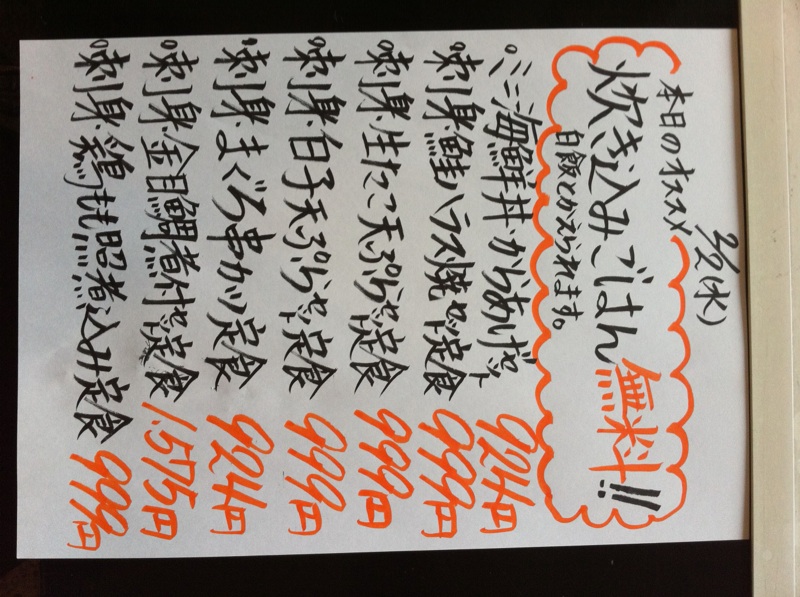 3/2(水)
本日のオススメ
炊き込みごはん無料!!
白飯とかえられます。
°ミニ海鮮丼・からあげセット 924円
°刺身・鮭ハラス焼セット定食 999円
°刺身・生たこ天ぷらセット定食 999円
°刺身・白子天ぷらセット定食 999円
°刺身・まぐろ串カツ定食 924円
°刺身・金目鯛煮付セット定食 1.575円
°刺身・鶏もも照煮込み定食 999円